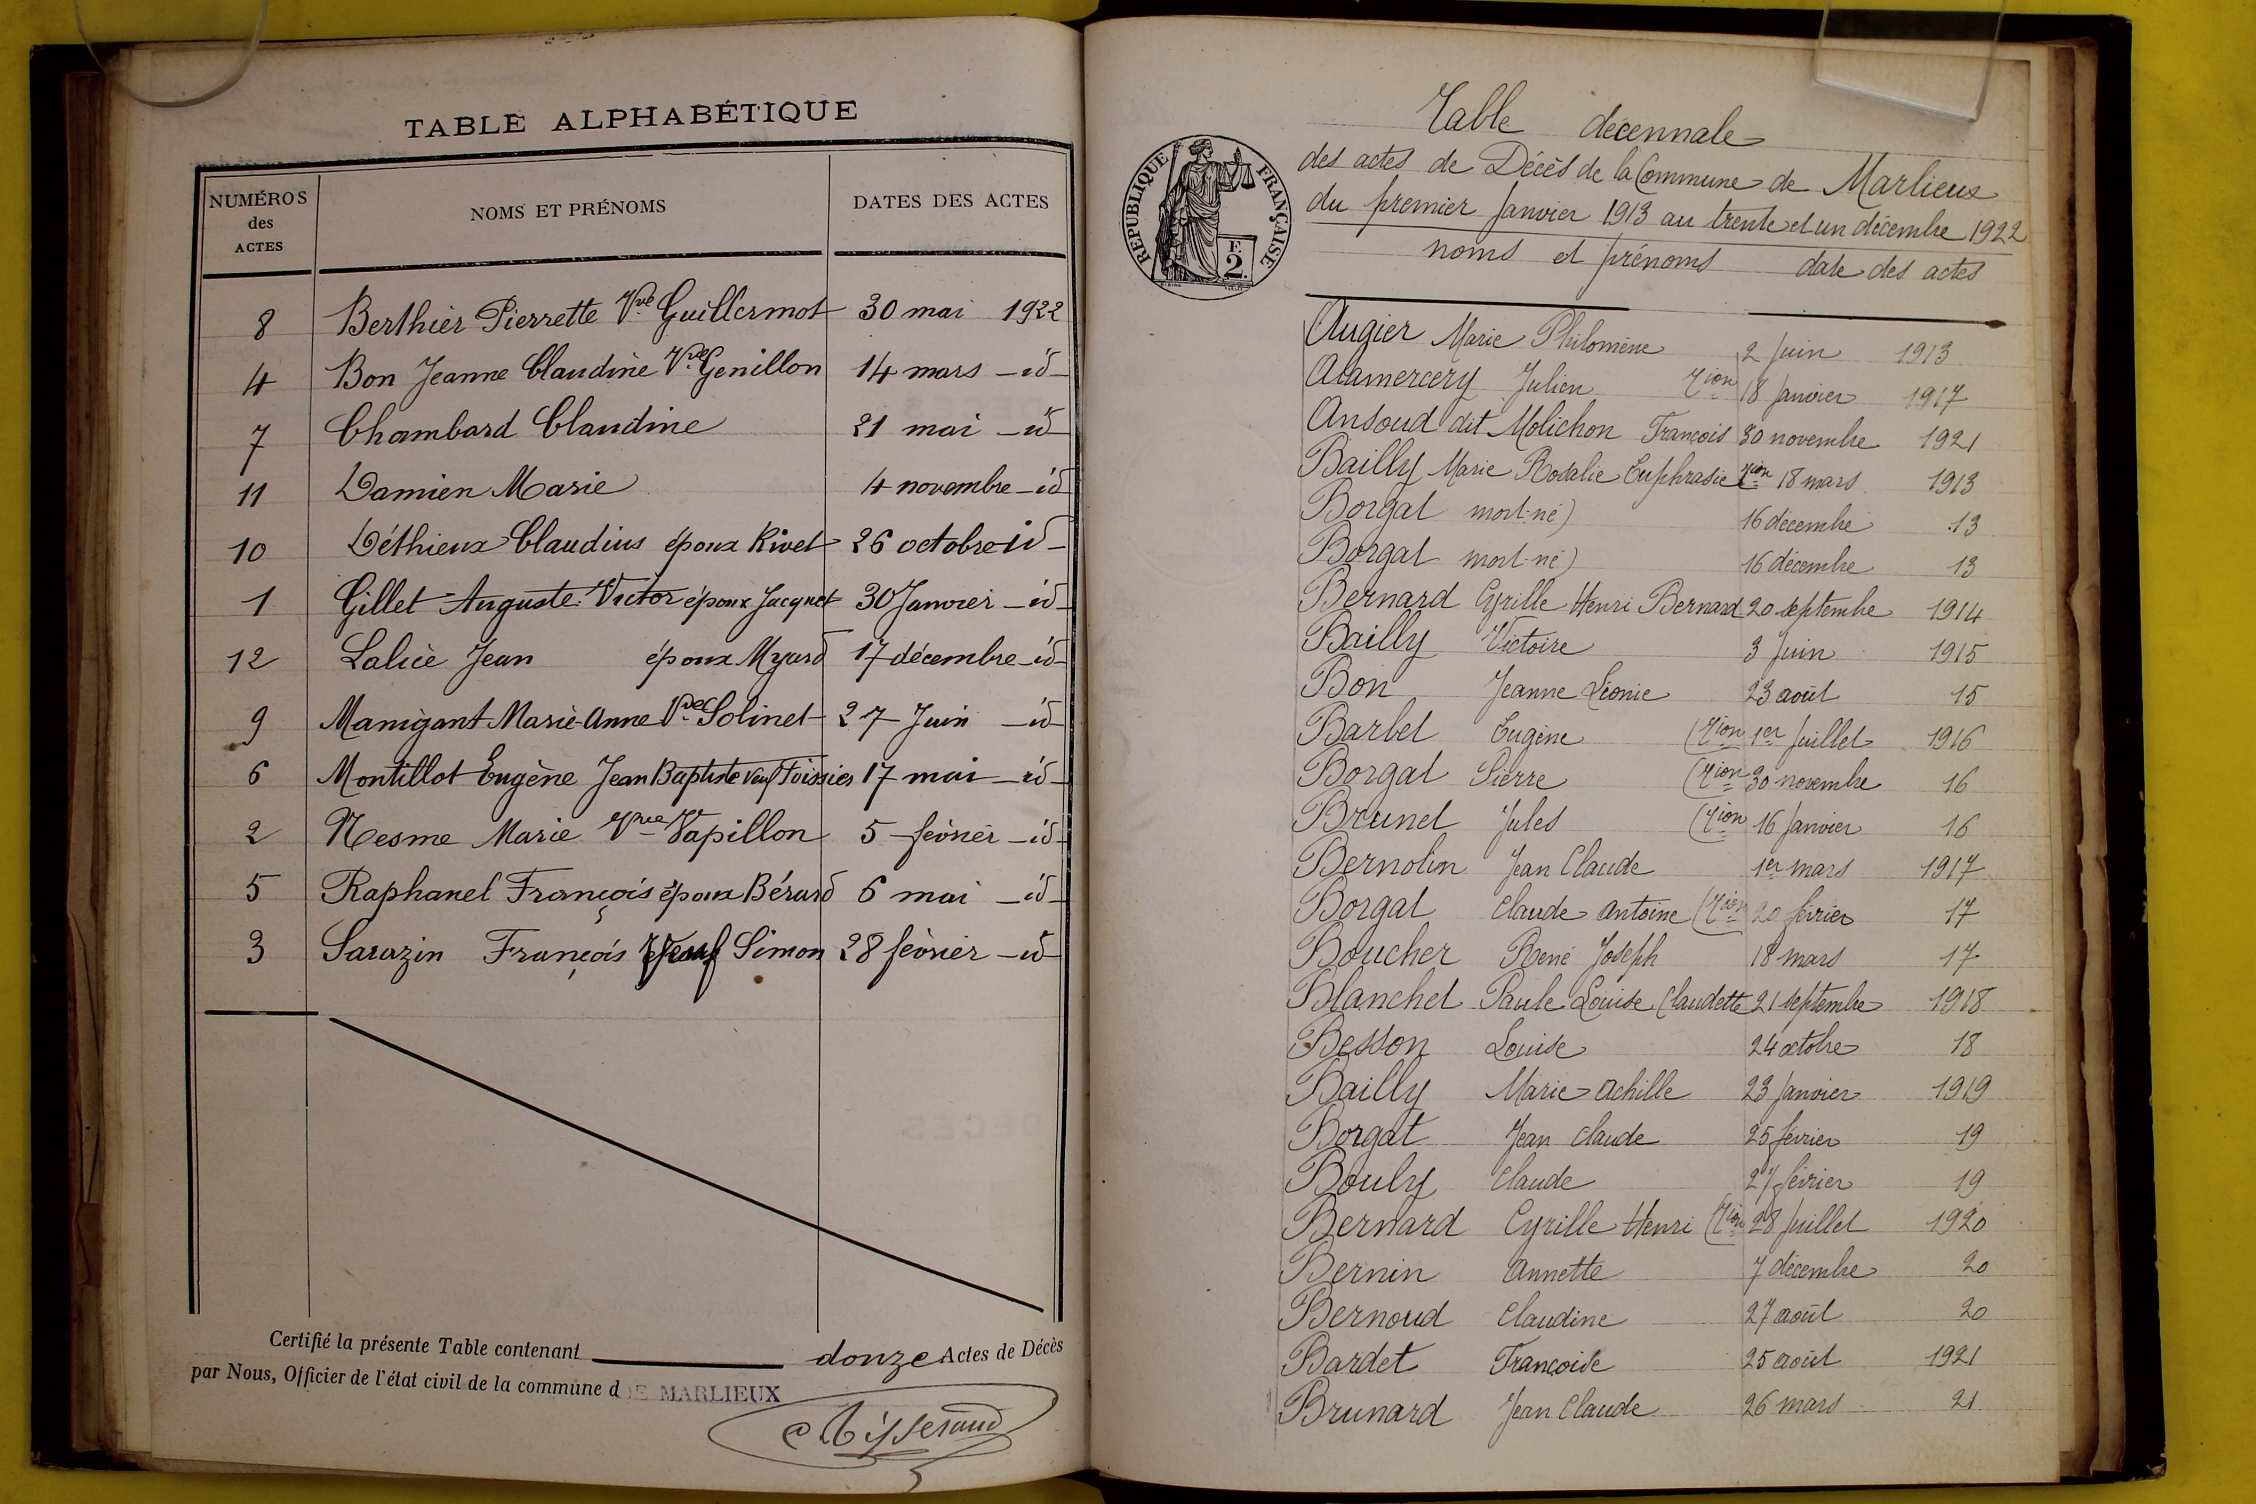 TABLE ALPHABÉTIQUE
NUMÉROS des ACTES NOMS ET PRÉNOMS DATES DES ACTES
8 Berthier Pierrette Vve Guillermot 30 mai 1922
4 Bon Jeanne Claudine Vve Genillon 14 mars -id-
7 Chambard Claudine 21 mai -id-
11 Damien Marie 4 novembre -id-
10 Déthieux Claudius époux Rivet 26 octobre id-
1 Gillet Auguste Victor époux Jacquet 30 Janvier -id-
12 Lalice Jean époux Myard 17 décembre -id-
9 Manigant Marie-Anne Vve Solinet 27 Juin -id-
6 Montillot Eugène Jean Baptiste veuf 17 mai -id-
2 Nesme Marie Vve Vapillon 5 février -id-
5 Raphanel François époux Bérard 6 mai -id-
3 Sarazin François Veuf Simon 28 février -id-
Certifié la présente Table contenant douze Actes de Décès
par Nous, Officier de l'état civil de la commune d DE MARLIEUX
Tisserand
RÉPUBLIQUE FRANÇAISE
F.
2.
Table décennale
des actes de Décès de la Commune de Marlieux
du premier Janvier 1913 au trente et un décembre 1922
noms et prénoms date des actes
Augier Marie Philomène 2 Juin 1913
Alamercery Julien Tion 18 Janvier 1917
Ansoud dit Molichon François 30 novembre 1921
Bailly Marie Rosalie Euphrasie Tion 18 mars 1913
Borgat mort-né) 16 décembre 13
Borgat mort-né) 16 décembre 13
Bernard Cyrille Henri Bernard 20 septembre 1914
Bailly Victoire 3 Juin 1915
Bon Jeanne Léonie 23 août 15
Barbet Eugène (Tion 1er Juillet 1916
Borgat Pierre (Tion 30 novembre 16
Brunet Jules (Tion 16 Janvier 16
Bernolin Jean Claude 1er mars 1917
Borgat Claude Antoine (Tion 20 février 17
Boucher René Joseph 18 mars 17
Blanchet Paule Louise Claudette 21 septembre 1918
Besson Louise 24 octobre 18
Bailly Marie Achille 23 Janvier 1919
Borgat Jean Claude 25 février 19
Bouly Claude 27 février 19
Bernard Cyrille Henri (Tion 28 Juillet 1920
Bernin Annette 7 décembre 20
Bernoud Claudine 27 août 20
Bardet Françoise 25 août 1921
Brunard Jean Claude 26 mars 21